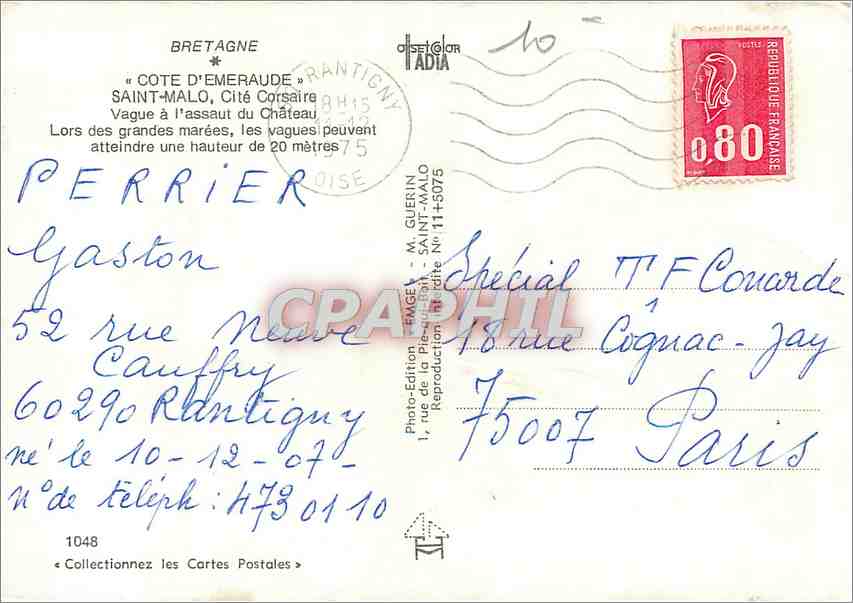 BRETAGNE
*
« COTE D'EMERAUDE »
SAINT-MALO, Cité Corsaire
Vague à l'assaut du Château
Lors des grandes marées, les vagues peuvent
atteindre une hauteur de 20 mètres
PERRIER
Gaston
52 rue Neuve
Cauffry
60290 Rantigny
né le 10-12-07-
N° de téléph : 473 01 10
1048
« Collectionnez les Cartes Postales »
RANTIGNY
18H15
11-12
1975
OISE
OFFSETCOLOR
IADIA
10
POSTES
REPUBLIQUE FRANÇAISE
0,80
Photo-Edition « EMGE » - M. GUERIN
1, rue de la Pie-qui-Boit - SAINT-MALO
Reproduction interdite No 11+5075
CPAPHIL
Spécial TF1 Conarde
18 rue Cognac-Jay
75007 Paris